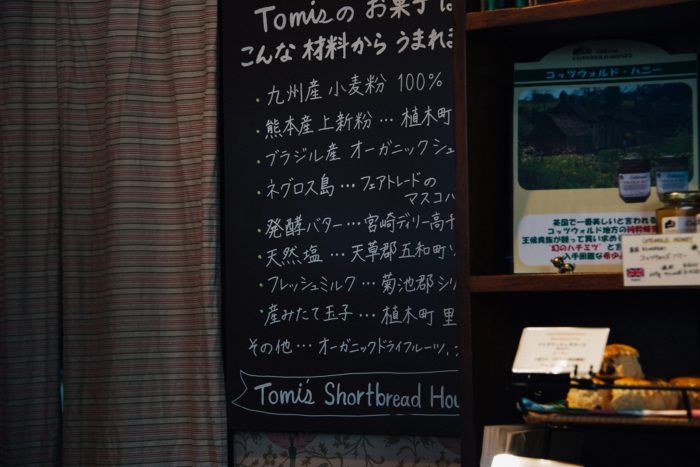 Tomi'sのお菓子は
こんな材料から うまれま
・九州産 小麦粉 100%
・熊本産上新粉…植木町
・ブラジル産 オーガニックシュ
・ネグロス島…フェアトレードの
マスコバ
・発酵バター…宮崎デイリー高千
・天然塩…天草郡五和町
・フレッシュミルク…菊池郡
・産みたて玉子…植木町
その他…オーガニックドライフルーツ,
Tomi's Shortbread Hou
COTSWOLD HONEY
コッツウォルド・ハニー
英国で一番美しいと言われる
コッツウォルド地方の純粋蜂蜜
王侯貴族が競って買い求め
幻のハチミツ
入手困難な